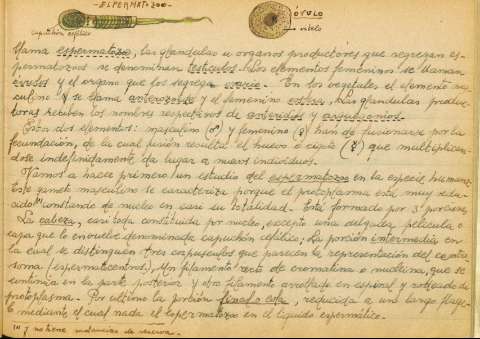 - ESPERMATOZOO -
ÓVULO
vitelo
capuchón cefálico
llama espermatozoo, las glándulas u órganos productores que segregan es-
permatozoos se denominan testículos. Los elementos femeninos se llaman
óvulos y el órgano que los segrega ovario. En los vegetales el elemento ma-
culino se llama anterozoide y el femenino oosfera, las glándulas produc-
toras reciben los nombres respectivos de anteridios y arquegonios.
Estos dos elementos: masculino (♂) y femenino (♀) han de fusionarse por la
fecundación, de la cual fusión resulta el huevo o cigoto, que multiplican-
dose indefinidamente da lugar a nuevos individuos.
Vamos a hacer primero un estudio del espermatozoo en la especie humana.
Este gameto masculino se caracteriza porque el protoplasma está muy redu-
cido constando de nucleo en casi su totalidad. Está formado por 3 porciones.
La cabeza, casi toda constituida por nucleo, excepto una delgada película o
capa que lo envuelve denominada capuchón cefálico; La porción intermedia en
la cual se distinguen tres corpusculos que parecen la representación del centro
soma (espermatocentros), Un filamento recto de cromatina o nucleina, que se
continúa en la parte posterior y otro filamento arrollado en espiral y rodeado de
protoplasma. Por ultimo la porción final o cola, reducida a un largo flage-
lo mediante el cual nada el espermatozoo en el líquido espermático.
(1) y no tiene sustancias de reserva.